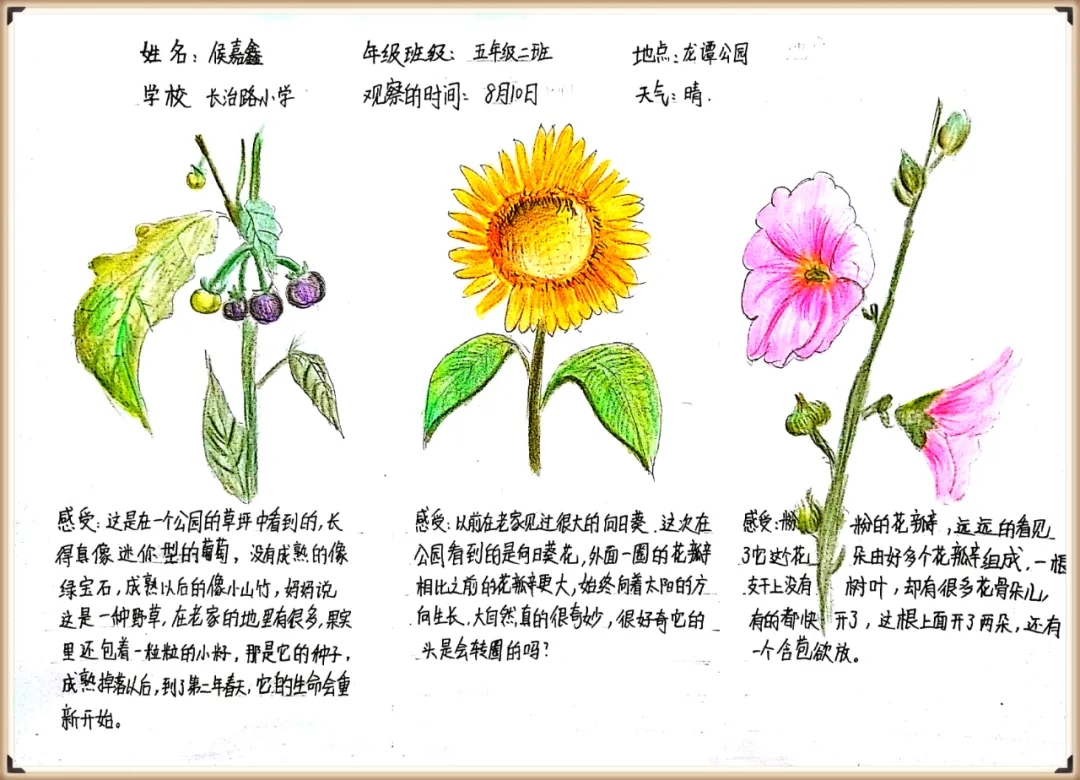 姓名：侯嘉鑫 年级班级：五年级二班 地点：龙潭公园
学校 长治路小学 观察的时间：8月10日 天气：晴.
感受：这是在一个公园的草坪中看到的，长
得真像迷你型的葡萄，没有成熟的像
绿宝石，成熟以后的像小山竹，妈妈说
这是一种野草，在老家的地里有很多，果实
里还包着一粒粒的小籽，那是它的种子，
成熟掉落以后，到了第二年春天，它的生命会重
新开始。
感受：以前在老家见过很大的向日葵.这次在
公园看到的是向日葵花，外面一圈的花瓣
相比之前的花瓣更大，始终向着太阳的方
向生长，大自然真的很奇妙，很好奇它的
头是会转圈的吗？
感受：粉粉的花瓣，远远的看见
了它这个花朵由好多个花瓣组成，一根
支干上没有树叶，却有很多花骨朵儿，
有的都快开了，这根上面开了两朵，还有
一个含苞欲放。